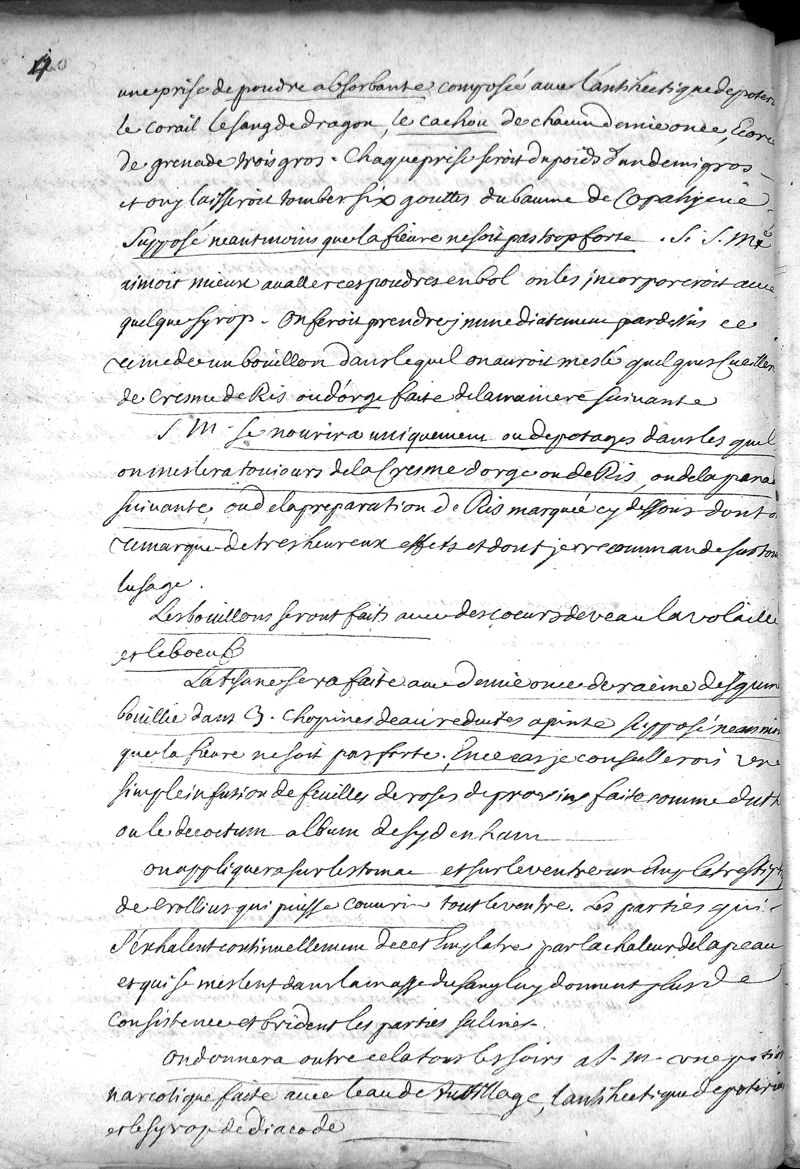 4
une prise de poudre absorbante composée avec l'antihectique de poteri
le corail le sang de dragon, le cachou de chacun demie once, Ecorce
de grenade trois gros. Chaque prise seroit du poids d'un demi gros
et on y laisseroit tomber six gouttes du baume de Copahu
Supposé neantmoins que la fievre ne soit pas trop forte. Si S. Mté
aimoit mieux avaller ces poudres en bol on les jncorporeroit avec
quelque syrop. On feroit prendre jmmediatement par dessus ce
remede un bouillon dans lequel on auroit meslé quelques Cueillers
de Cresme de Ris ou d'orge faite de la maniere suivante
S M. se nourira uniquement ou de potages dans les quels
on meslera toujours de la Cresme d'orge ou de Ris, ou de la pana
suivante, ou de la preparation de Ris marquée cy dessous dont on
remarque de tres heureux effets et dont je recommande sus tout
lusage.
Les bouillons seront faits avec des coeurs de veau la volaille
et le boeuf
La tisane sera faite avec demie once de racine desquine
bouillie dans 3. chopines deau reduites a pinte supposé neanmoins
que la fievre ne soit pas forte. En ce cas je conseillerois une
simple infusion de feuilles de roses de provins faite comme du thé
ou le decoctum album de sydenham
on appliquera sur lestomac et sur le ventre un Emplatre stipti
de Crollius qui puisse couvrir tout le ventre. Les parties qui
s'exhalent continuellement de cet Emplatre par la chaleur de la peau
et qui se meslent dans la masse du sang luy donnent plus de
consistence et brident les parties salines.
On donnera outre cela tous les soirs a S. M. une potion
narcotique faite avec leau de tussillage, l'antihectique de poterius
et le syrop de diacode